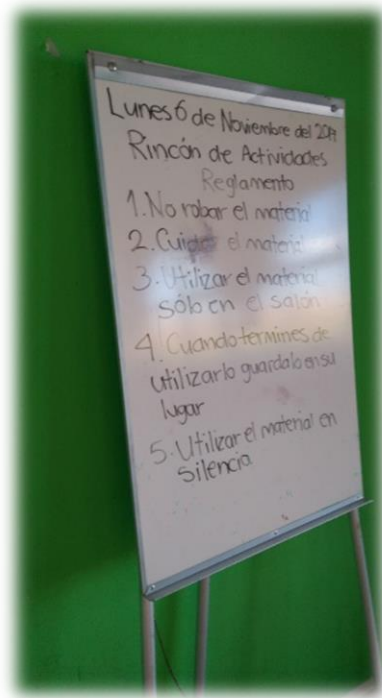 Lunes 6 de Noviembre del 2017
Rincón de Actividades
Reglamento
1. No robar el material
2. Cuidar el material
3. Utilizar el material
sólo en el salón
4. Cuando termines de
utilizarlo guardalo en su
lugar
5. Utilizar el material en
silencio